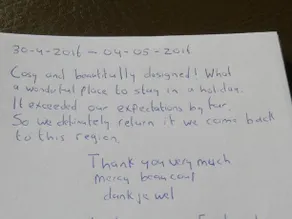 30-4-2016 - 04-05-2016
Cosy and beautifully designed! What
a wonderful place to stay in a holiday.
It exceeded our expectations by far.
So we definately return if we come back
to this region.
Thank you very much
mercy beaucoul
dank je wel